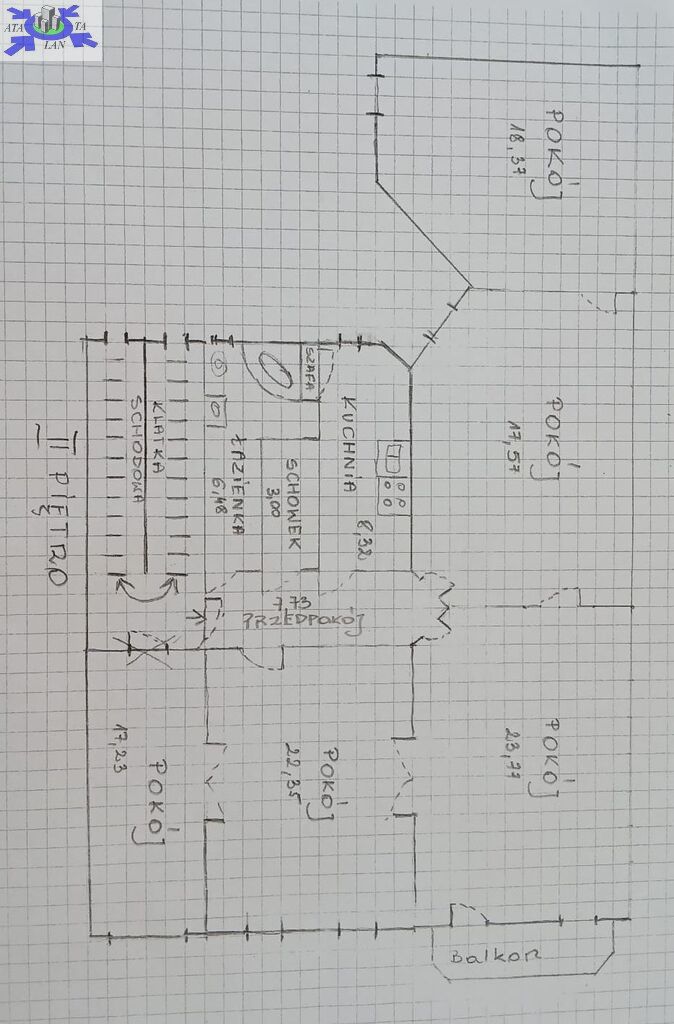 ATA TA
LAN
POKÓJ
18,37
POKÓJ
17,57
SZAFA
KUCHNIA
8,32
SCHOWEK
3,00
ŁAZIENKA
6,48
KLATKA
SCHODOWA
II PIĘTRO
7,73
PRZEDPOKÓJ
POKÓJ
POKÓJ
22,35
POKÓJ
17,23
Balkon